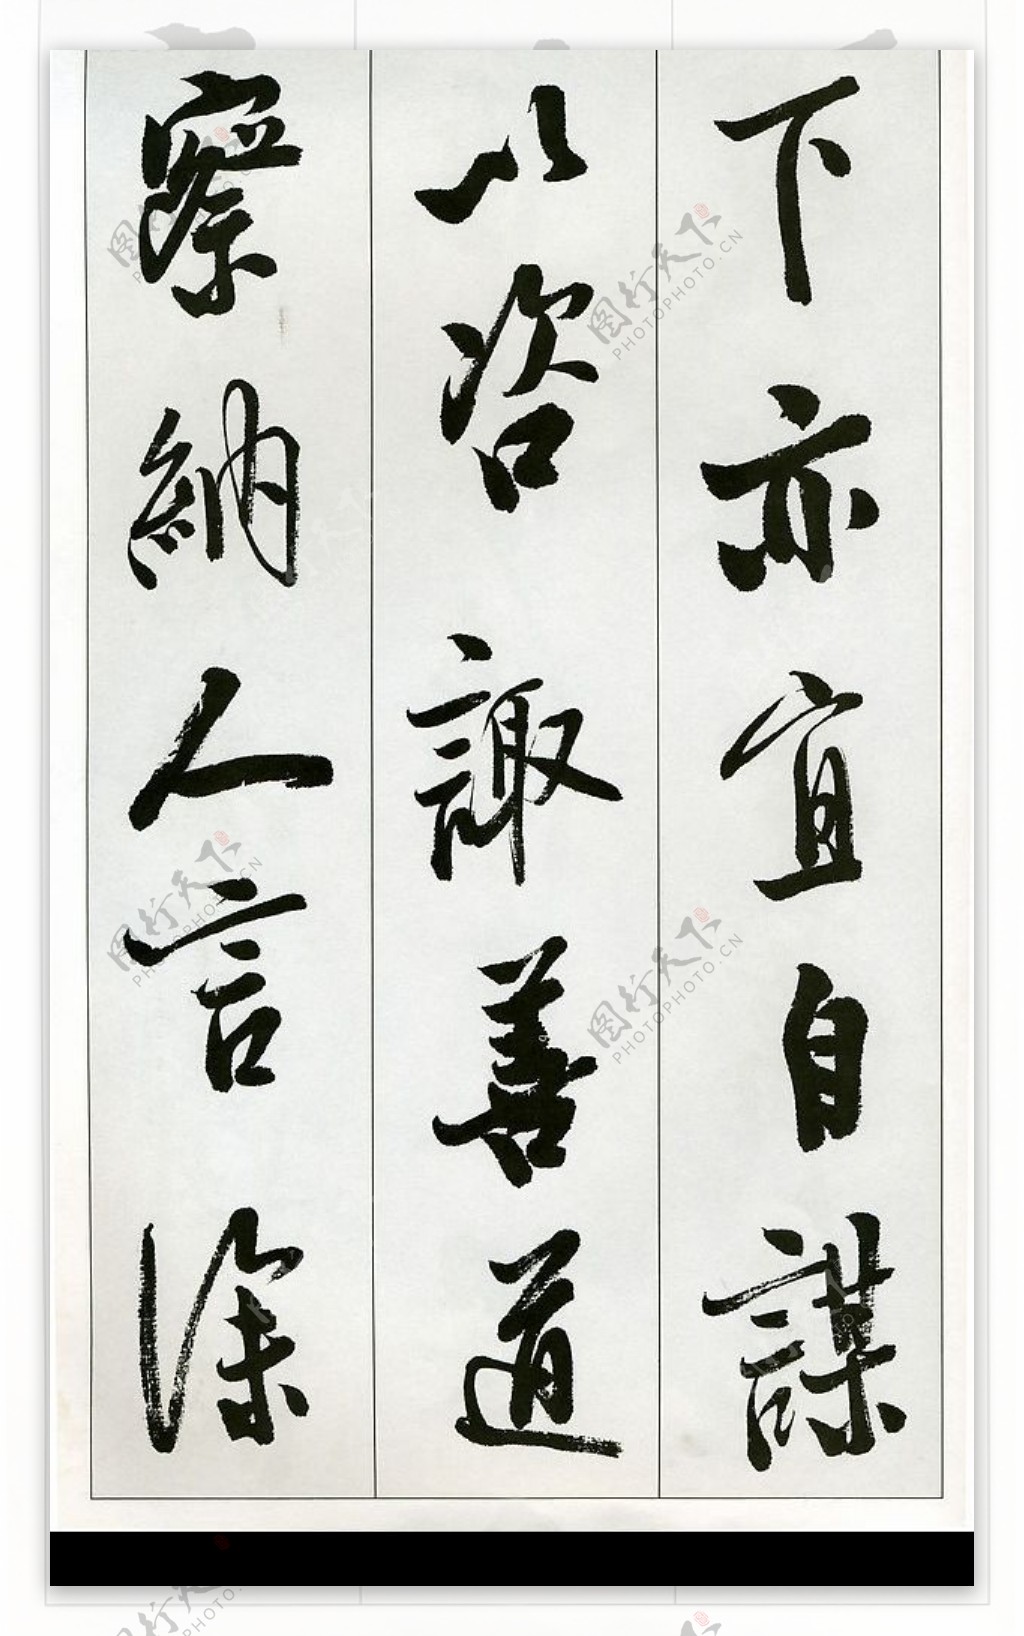 下亦宜自謀
以咨諏善道
察納人言深
图行天下
PHOTOPHOTO.CN
图行天下
PHOTOPHOTO.CN
图行天下
PHOTOPHOTO.CN
图行天下
PHOTOPHOTO.CN